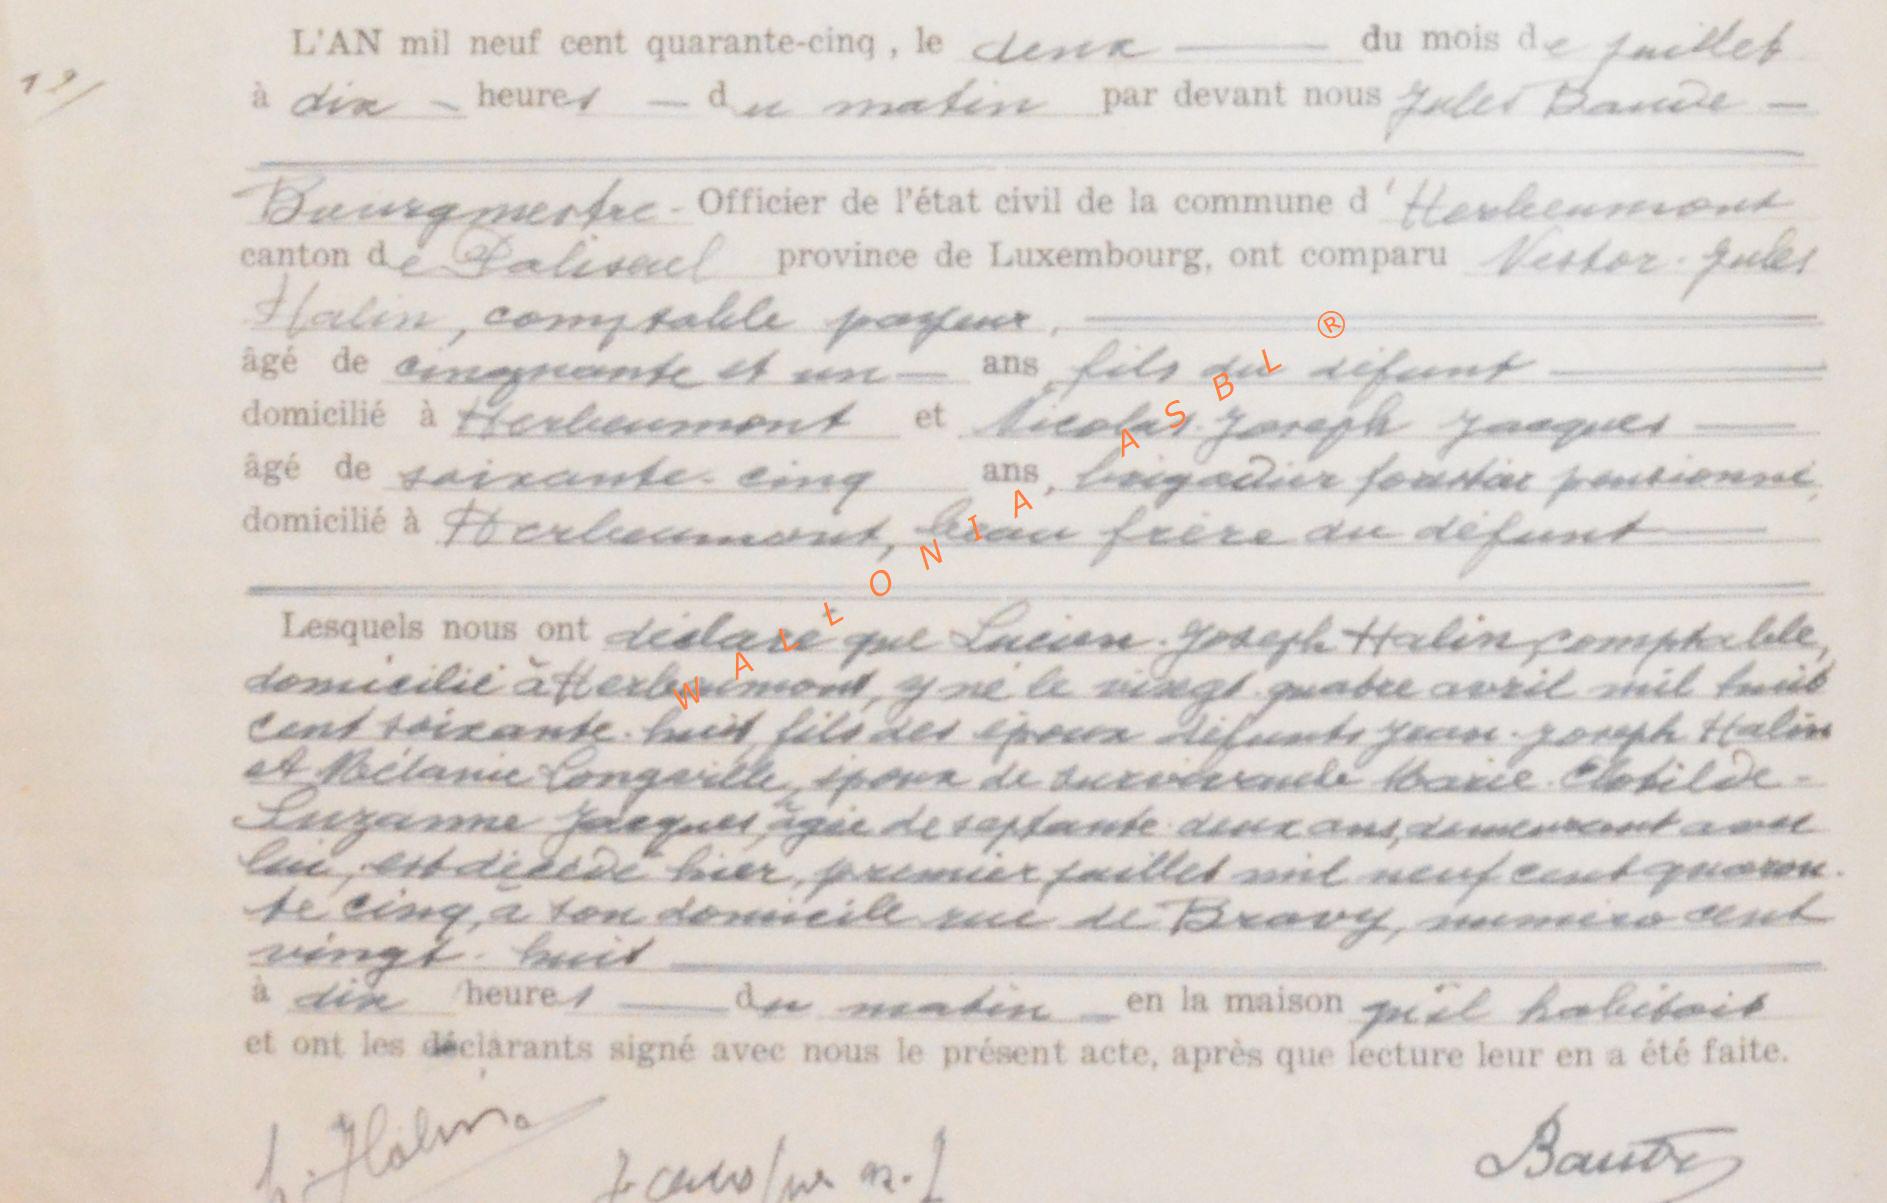 L'AN mil neuf cent quarante-cinq, le deux du mois de juillet
19/
à dix heures du matin par devant nous Jules
Bourgmestre - Officier de l'état civil de la commune d'Herbeumont
canton de Paliseul province de Luxembourg, ont comparu Nestor-Jules
Halin, comptable payeur,
âgé de cinquante et un ans, fils du défunt
domicilié à Herbeumont et Nicolas-Joseph Jacques
âgé de soixante-cinq ans, brigadier forestier pensionné,
domicilié à Herbeumont, beau frère du défunt
Lesquels nous ont déclaré que Lucien-Joseph Halin, comptable,
domicilié à Herbeumont, y né le vingt-quatre avril mil huit
cent soixante-huit, fils des époux défunts Jean-Joseph Halin
et Mélanie Longville, époux de survivante Marie-Clotilde-
Suzanne Jacques, âgée de septante-deux ans, demeurant avec
lui, est décédé hier, premier juillet mil neuf cent quaran-
te cinq, à son domicile rue de Bravy, numéro cent
vingt-huit
à dix heures du matin en la maison qu'il habitait
et ont les déclarants signé avec nous le présent acte, après que lecture leur en a été faite.
Halin
WALLONIA ASBL ®